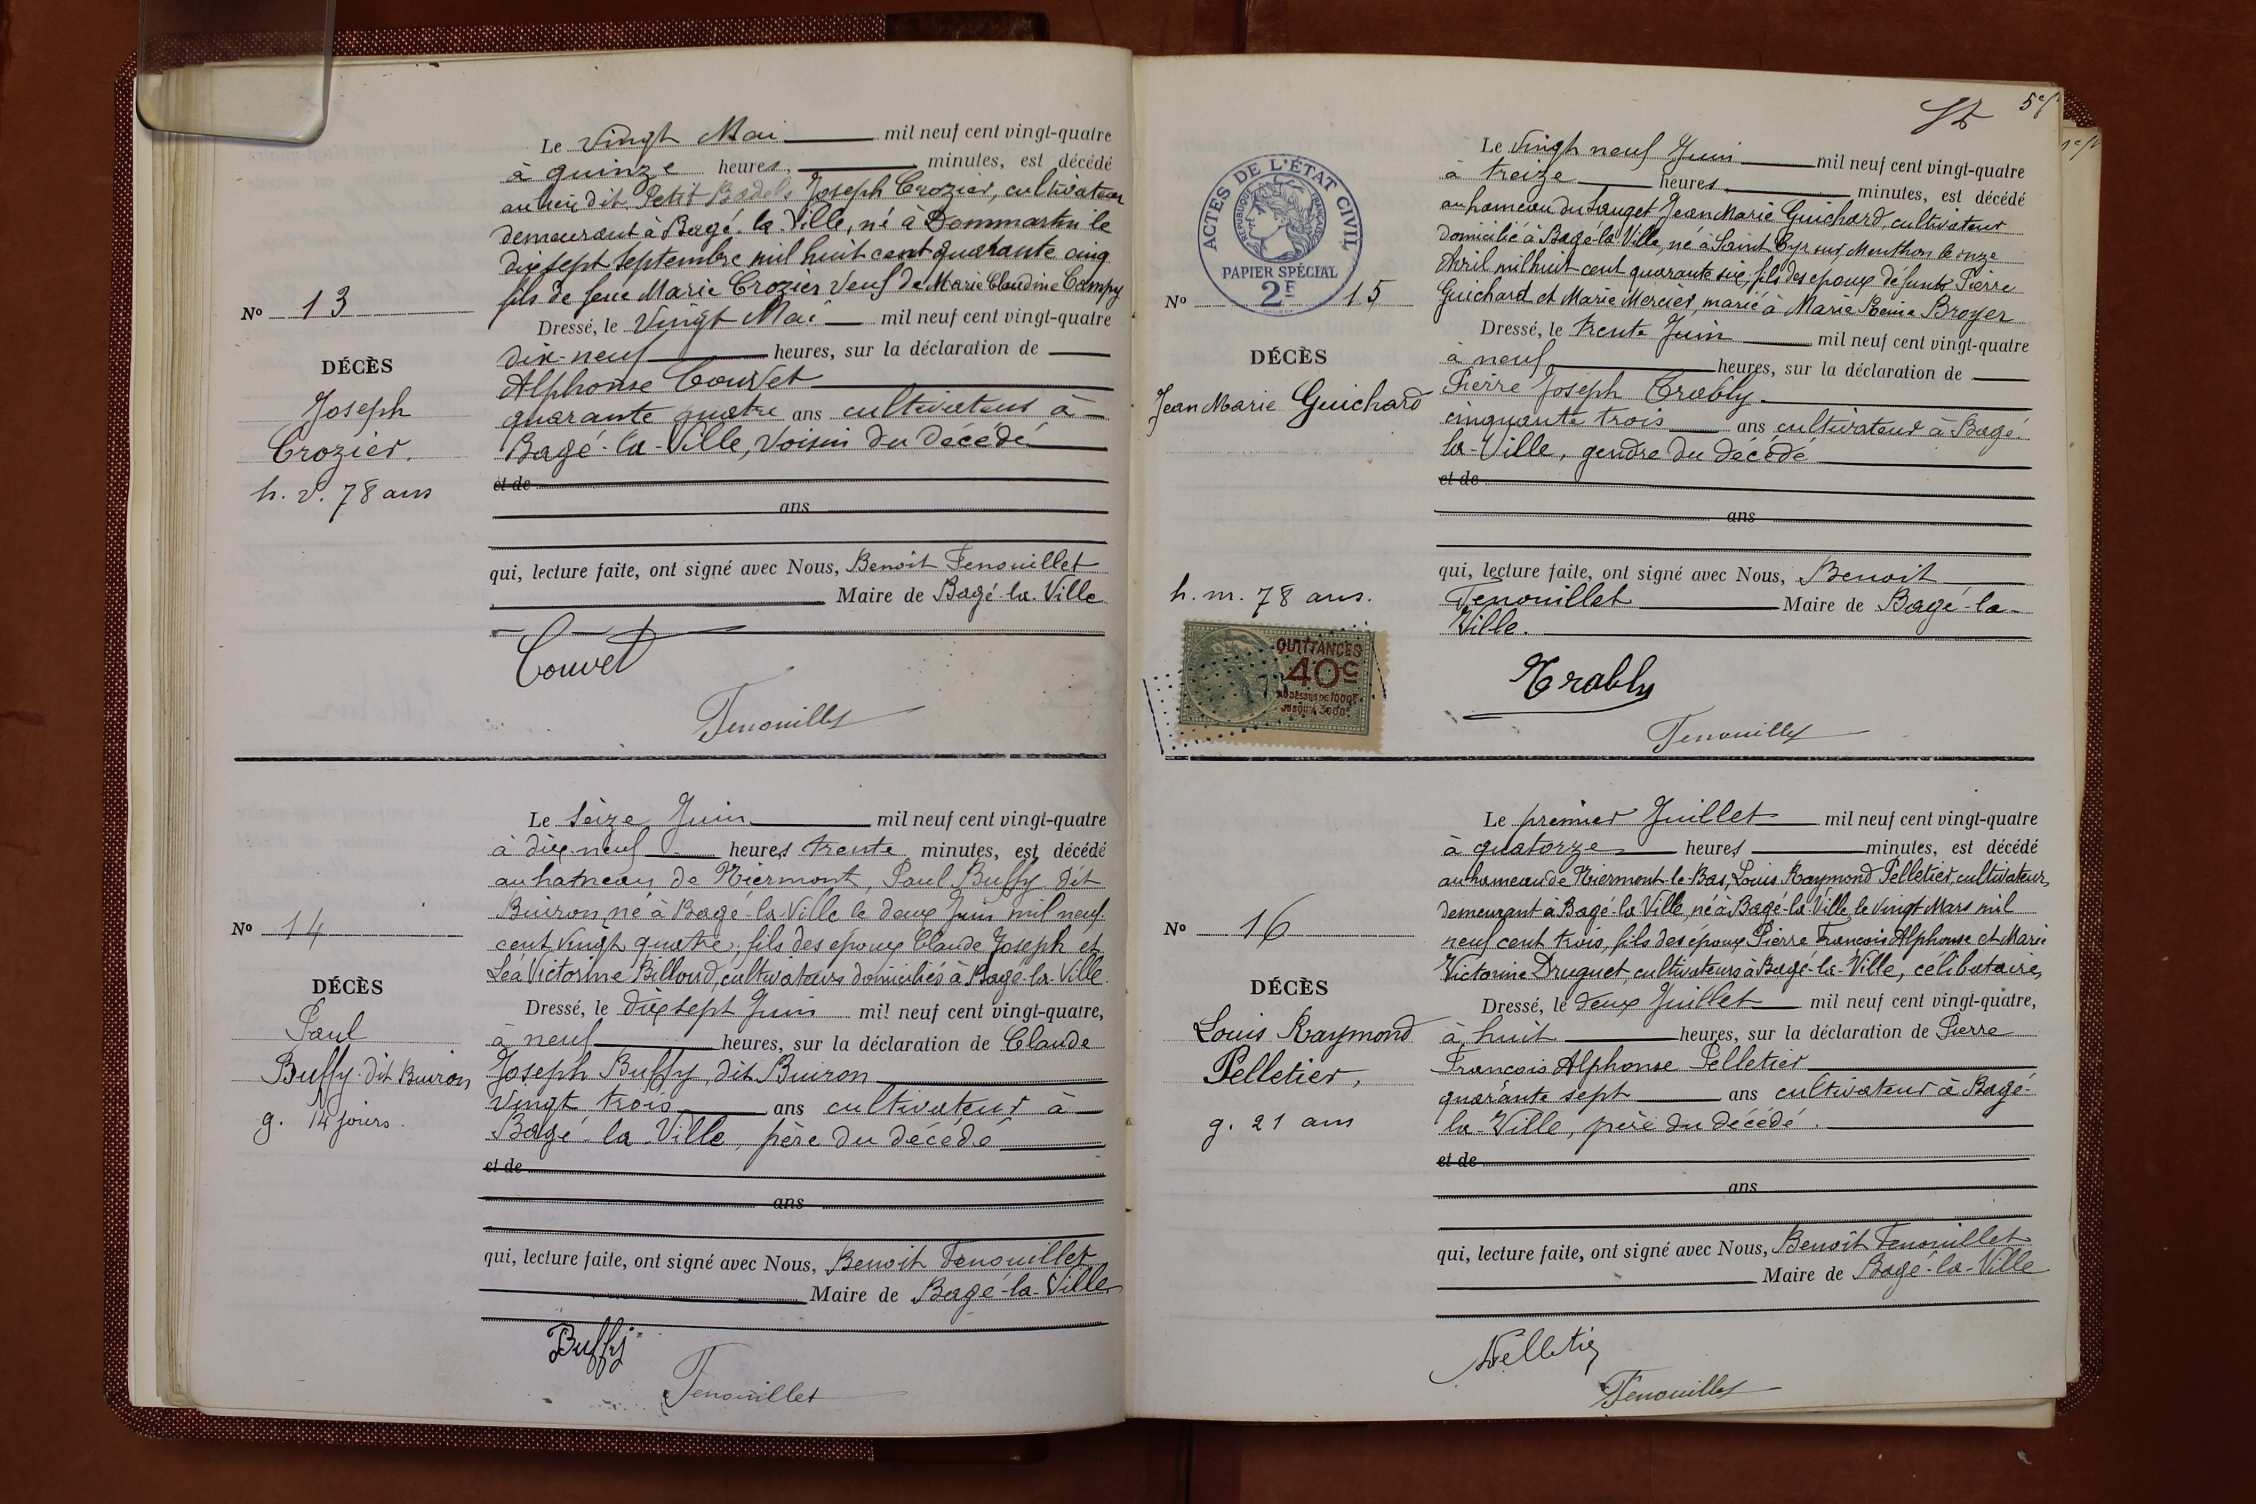 Le vingt Mai mil neuf cent vingt-quatre
à quinze heures, minutes, est décédé
au lieu dit Petit Badel Joseph Crozier, cultivateur
demeurant à Bagé-la-Ville, né à Dommartin le
dix sept septembre mil huit cent quarante cinq
fils de feue Marie Crozier Veuf de Marie Claudine Campy
No 13
Dressé, le Vingt Mai mil neuf cent vingt-quatre
dix-neuf heures, sur la déclaration de
DÉCÈS
Alphonse Couvet
Joseph
quarante quatre ans cultivateur à
Crozier.
Bagé-la-Ville, voisin du décédé
h. v. 78 ans
et de
ans
qui, lecture faite, ont signé avec Nous, Benoit Fenouillet
Maire de Bagé-la-Ville
Couvet
Fenouillet
Le seize Juin mil neuf cent vingt-quatre
à dix-neuf heures trente minutes, est décédé
au hameau de Niermont, Paul Buffy dit
Buiron, né à Bagé-la-Ville le deux Juin mil neuf
No 14
cent vingt quatre, fils des époux Claude Joseph et
Léa Victorine Billoud, cultivateurs domiciliés à Bagé-la-Ville.
DÉCÈS
Dressé, le dix sept Juin mil neuf cent vingt-quatre,
Paul
à neuf heures, sur la déclaration de Claude
Buffy dit Buiron
Joseph Buffy, dit Buiron
vingt trois ans cultivateur à
g. 14 jours.
Bagé-la-Ville, père du décédé
et de
ans
qui, lecture faite, ont signé avec Nous, Benoit Fenouillet
Maire de Bagé-la-Ville
Buffy
Fenouillet
ACTES DE L'ÉTAT CIVIL
RÉPUBLIQUE FRANÇAISE
PAPIER SPÉCIAL
2F
Le Vingt neuf Juin mil neuf cent vingt-quatre
à treize heures minutes, est décédé
au hameau du Sauget Jean Marie Guichard, cultivateur
domicilié à Bagé-la-Ville, né à Saint Cyr sur Menthon le onze
Avril mil huit cent quarante six, fils des époux défunts Pierre
No 15
Guichard et Marie Mercier, marié à Marie Reine Broyer
Dressé, le trente Juin mil neuf cent vingt-quatre
DÉCÈS
à neuf heures, sur la déclaration de
Jean Marie Guichard
Pierre Joseph Trably
cinquante trois ans cultivateur à Bagé-
la-Ville, gendre du décédé
et de
ans
qui, lecture faite, ont signé avec Nous, Benoit
h. m. 78 ans.
Fenouillet Maire de Bagé-la-
Ville.
QUITTANCES
40c
AU DESSUS DE 1000F
JUSQU'À 3000F
Trably
Fenouillet
Le premier Juillet mil neuf cent vingt-quatre
à quatorze heures minutes, est décédé
au hameau de Niermont-le-Bas, Louis Raymond Pelletier, cultivateur,
demeurant à Bagé-la-Ville, né à Bagé-la-Ville, le vingt Mars mil
No 16
neuf cent trois, fils des époux Pierre François Alphonse et Marie
Victorine Druguet, cultivateurs à Bagé-la-Ville, célibataire,
DÉCÈS
Dressé, le deux Juillet mil neuf cent vingt-quatre,
Louis Raymond
à huit heures, sur la déclaration de Pierre
Pelletier,
François Alphonse Pelletier
quarante sept ans cultivateur à Bagé-
g. 21 ans
la-Ville, père du décédé.
et de
ans
qui, lecture faite, ont signé avec Nous, Benoît Fenouillet
Maire de Bagé-la-Ville
Pelletier
Fenouillet